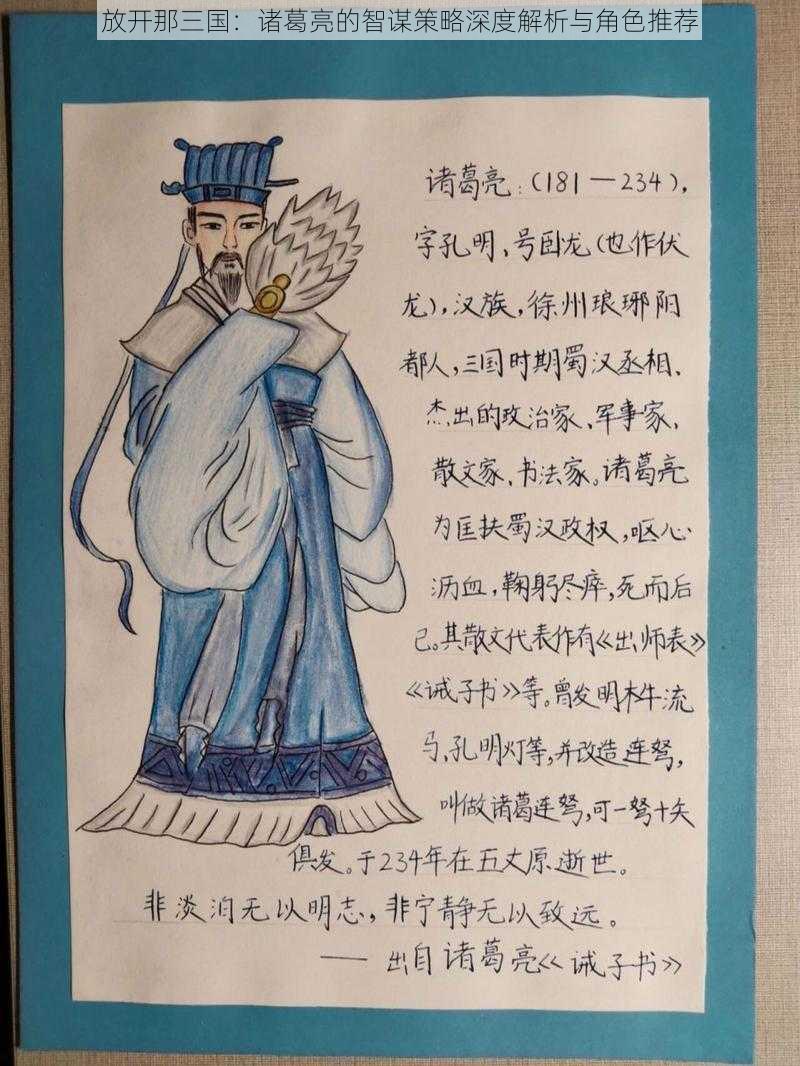 放开那三国：诸葛亮的智谋策略深度解析与角色推荐
诸葛亮：(181—234)，
字孔明、号卧龙(也作伏
龙)，汉族，徐州琅琊阳
都人，三国时期蜀汉丞相、
杰出的政治家、军事家、
散文家、书法家。诸葛亮
为匡扶蜀汉政权，呕心
沥血，鞠躬尽瘁，死而后
已。其散文代表作有《出师表》
《诫子书》等。曾发明木牛流
马、孔明灯等，并改造连弩，
叫做诸葛连弩，可一弩十矢
俱发。于234年在五丈原逝世。
非淡泊无以明志，非宁静无以致远。
—— 出自诸葛亮《诫子书》